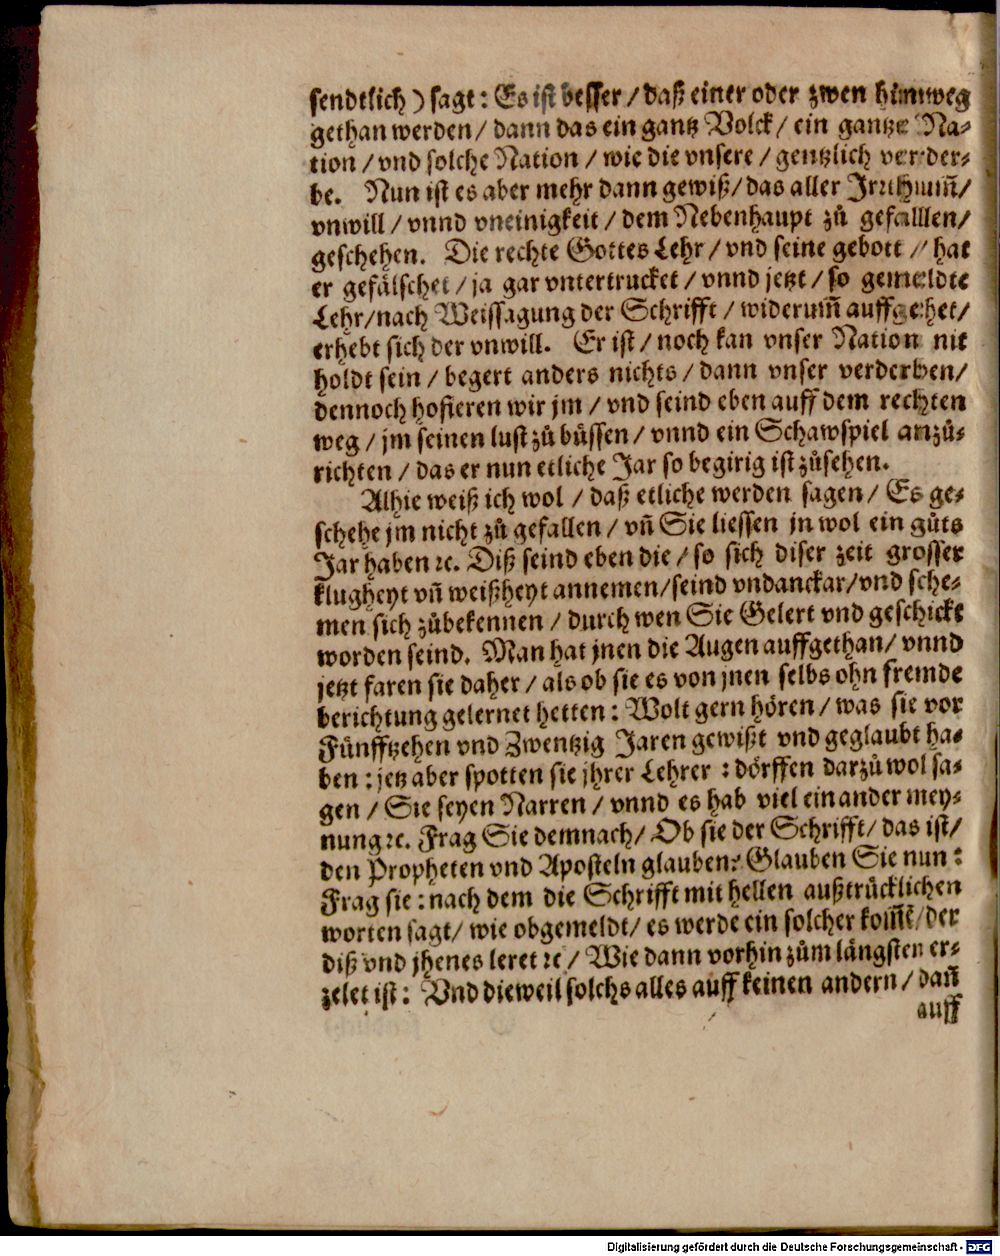 sendtlich) sagt: Es ist besser / daß einer oder zwen hinweg
gethan werden / dann das ein gantz Volck / ein gantze Na-
tion / vnd solche Nation / wie die vnsere / gentzlich verder-
be. Nun ist es aber mehr dann gewiß / das aller Irrthum̃ /
vnwill / vnnd vneinigkeit / dem Nebenhaupt zů gefalllen /
geschehen. Die rechte Gottes Lehr / vnd seine gebott // hat
er gefälschet / ja gar vntertrucket / vnnd jetzt / so gemeldte
Lehr / nach Weissagung der Schrifft / widerum̃ auffgehet /
erhebt sich der vnwill. Er ist / noch kan vnser Nation nit
holdt sein / begert anders nichts / dann vnser verderben /
dennoch hofieren wir jm / vnd seind eben auff dem rechten
weg / jm seinen lust zů büssen / vnnd ein Schawspiel anzů-
richten / das er nun etliche Jar so begirig ist zůsehen.
Alhie weiß ich wol / daß etliche werden sagen / Es ge-
schehe jm nicht zů gefallen / vñ Sie liessen jn wol ein gůts
Jar haben ꝛc. Diß seind eben die / so sich diser zeit grosser
klugheyt vñ weißheyt annemen / seind vndanckar / vnd sche-
men sich zůbekennen / durch wen Sie Gelert vnd geschickt
worden seind. Man hat jnen die Augen auffgethan / vnnd
jetzt faren sie daher / als ob sie es von jnen selbs ohn fremde
berichtung gelernet hetten: Wolt gern hören / was sie vor
Fünfftzehen vnd Zwentzig Jaren gewißt vnd geglaubt ha-
ben: jetz aber spotten sie jhrer Lehrer: dörffen darzů wol sa-
gen / Sie seyen Narren / vnnd es hab viel ein ander mey-
nung ꝛc. Frag Sie demnach / Ob sie der Schrifft / das ist /
den Propheten vnd Aposteln glauben: Glauben Sie nun:
Frag sie: nach dem die Schrifft mit hellen außtrücklichen
worten sagt / wie obgemeldt / es werde ein solcher kom̃ẽ / der
diß vnd jhenes leret ꝛc / Wie dann vorhin zům längsten er-
zelet ist: Vnd dieweil solchs alles auff keinen andern / dañ
auff
Digitalisierung gefördert durch die Deutsche Forschungsgemeinschaft - DFG